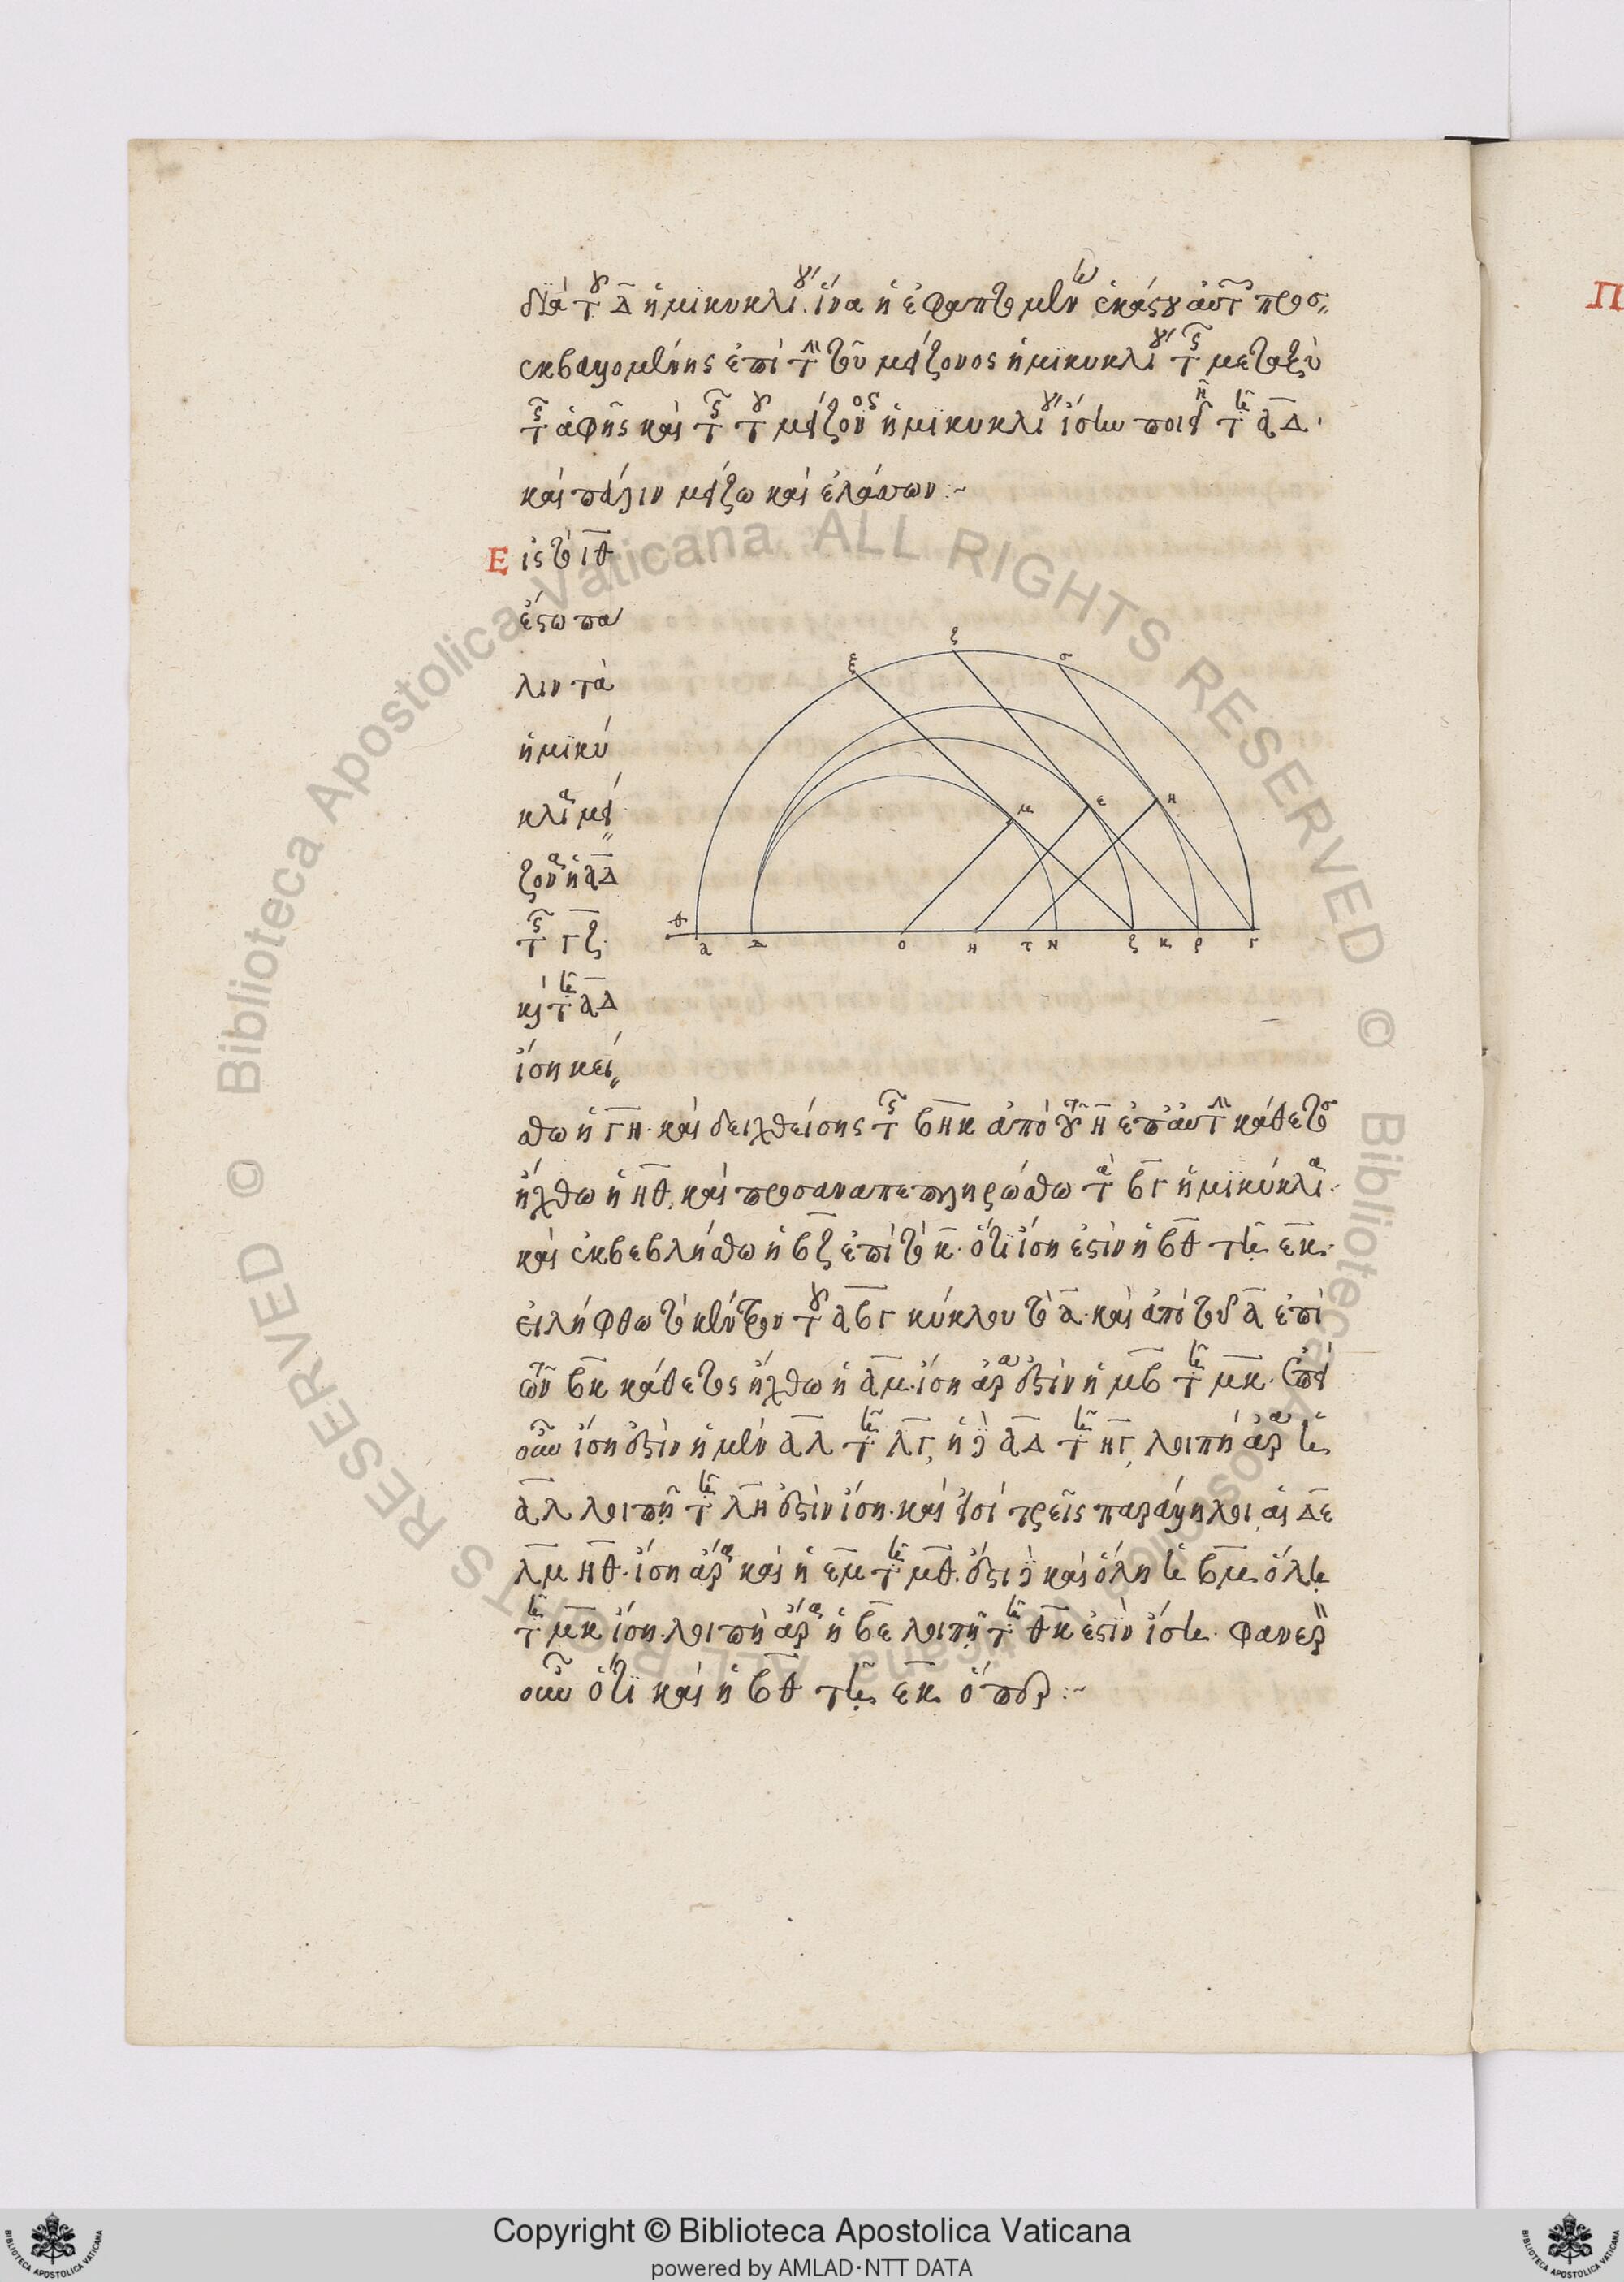 διὰ τοῦ Δ ἡμικυκλίου. ἵνα ἡ ἐφαπτομένη ἑκάστου αὐτῶν προσ
εκβαλλομένης ἐπὶ τὴν τοῦ μείζονος ἡμικυκλίου τῆς μεταξὺ
τῆς ἁφῆς καὶ τῆς τοῦ μείζονος ἡμικυκλίου ἴσην ποιεῖν τῇ ΑΔ.
καὶ πάλιν μείζω καὶ ἐλάττων :~
Εἰς τὸ ιθ
ἔστω πά
λιν τὰ
ἡμικύ
κλια μεί
ζον ἡ ΑΔ
τῆς ΓΖ.
καὶ τῇ ΑΔ
ἴση κεί
σθω ἡ ΓΗ. καὶ δειχθείσης τῆς ΒΗΚ ἀπὸ τοῦ Η ἐπ' αὐτὴν κάθετος
ἤχθω ἡ ΗΘ. καὶ προσαναπεπληρώσθω τὰ ΒΓ ἡμικύκλια.
καὶ ἐκβεβλήσθω ἡ ΒΖ ἐπὶ τὸ Κ. ὅτι ἴση ἐστὶν ἡ ΒΘ τῇ ΕΚ.
εἰλήφθω τὸ κέντρον τοῦ ΑΒΓ κύκλου τὸ Λ. καὶ ἀπὸ τοῦ Λ ἐπὶ
τὴν ΒΚ κάθετος ἤχθω ἡ ΛΜ. ἴση ἄρα ἐστὶν ἡ ΜΒ τῇ ΜΚ. ἐπεὶ
οὖν ἴση ἐστὶν ἡ μὲν ΑΛ τῇ ΛΓ, ἡ δὲ ΑΔ τῇ ΗΓ, λοιπὴ ἄρα ἡ
ΔΛ λοιπῇ τῇ ΛΗ ἐστὶν ἴση. καὶ εἰσὶ τρεῖς παράλληλοι αἱ ΔΕ
ΛΜ ΗΘ. ἴση ἄρα καὶ ἡ ΕΜ τῇ ΜΘ. ἔστι δὲ καὶ ὅλη ἡ ΒΜ ὅλῃ
τῇ ΜΚ ἴση. λοιπὴ ἄρα ἡ ΒΕ λοιπῇ τῇ ΘΚ ἐστὶν ἴση. φανερὸν
οὖν ὅτι καὶ ἡ ΒΘ τῇ ΕΚ ὅπερ :~
ξ ζ σ
μ ε η
θ
α Δ ο η τ ν ζ κ ρ γ
Π
© Biblioteca Apostolica Vaticana ALL RIGHTS RESERVED
© Biblioteca Apostolica Vaticana ALL RIGHTS RESERVED
Copyright © Biblioteca Apostolica Vaticana
powered by AMLAD·NTT DATA
BIBLIOTECA APOSTOLICA VATICANA
BIBLIOTECA APOSTOLICA VATICANA